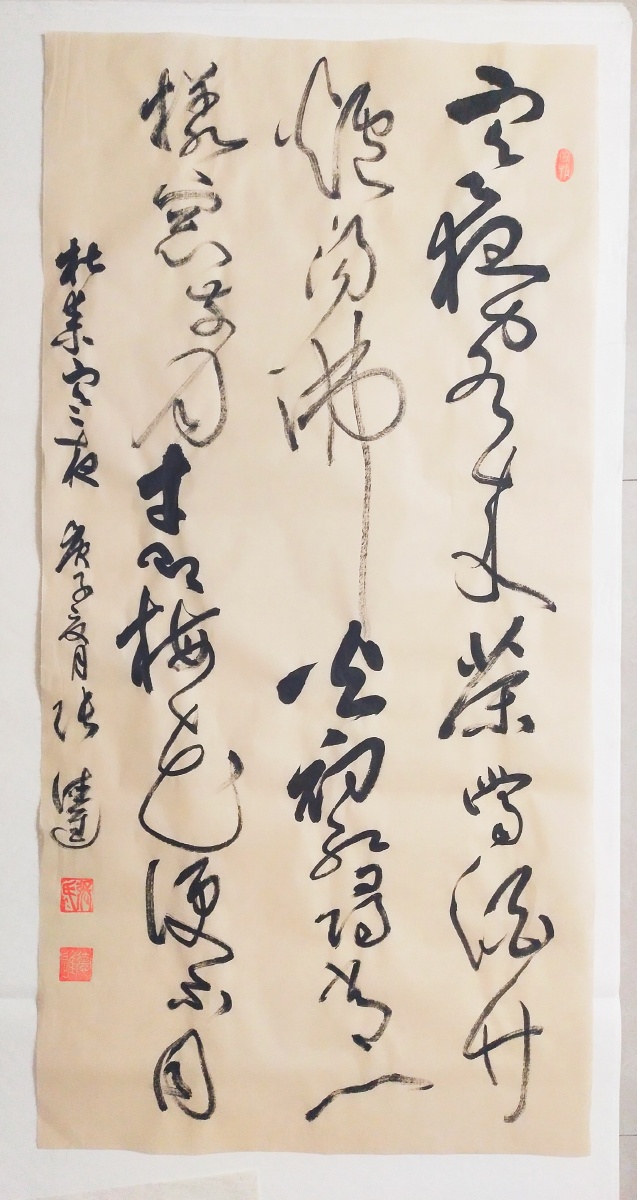 寒夜客来茶當酒竹
爐湯沸火初紅尋常一
樣窗前月才有梅花便不同
杜耒寒夜 庚子夏月 张